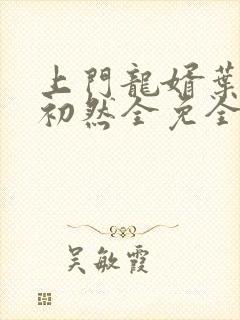 上門龍婿葉
初然全免全
吴敏霞